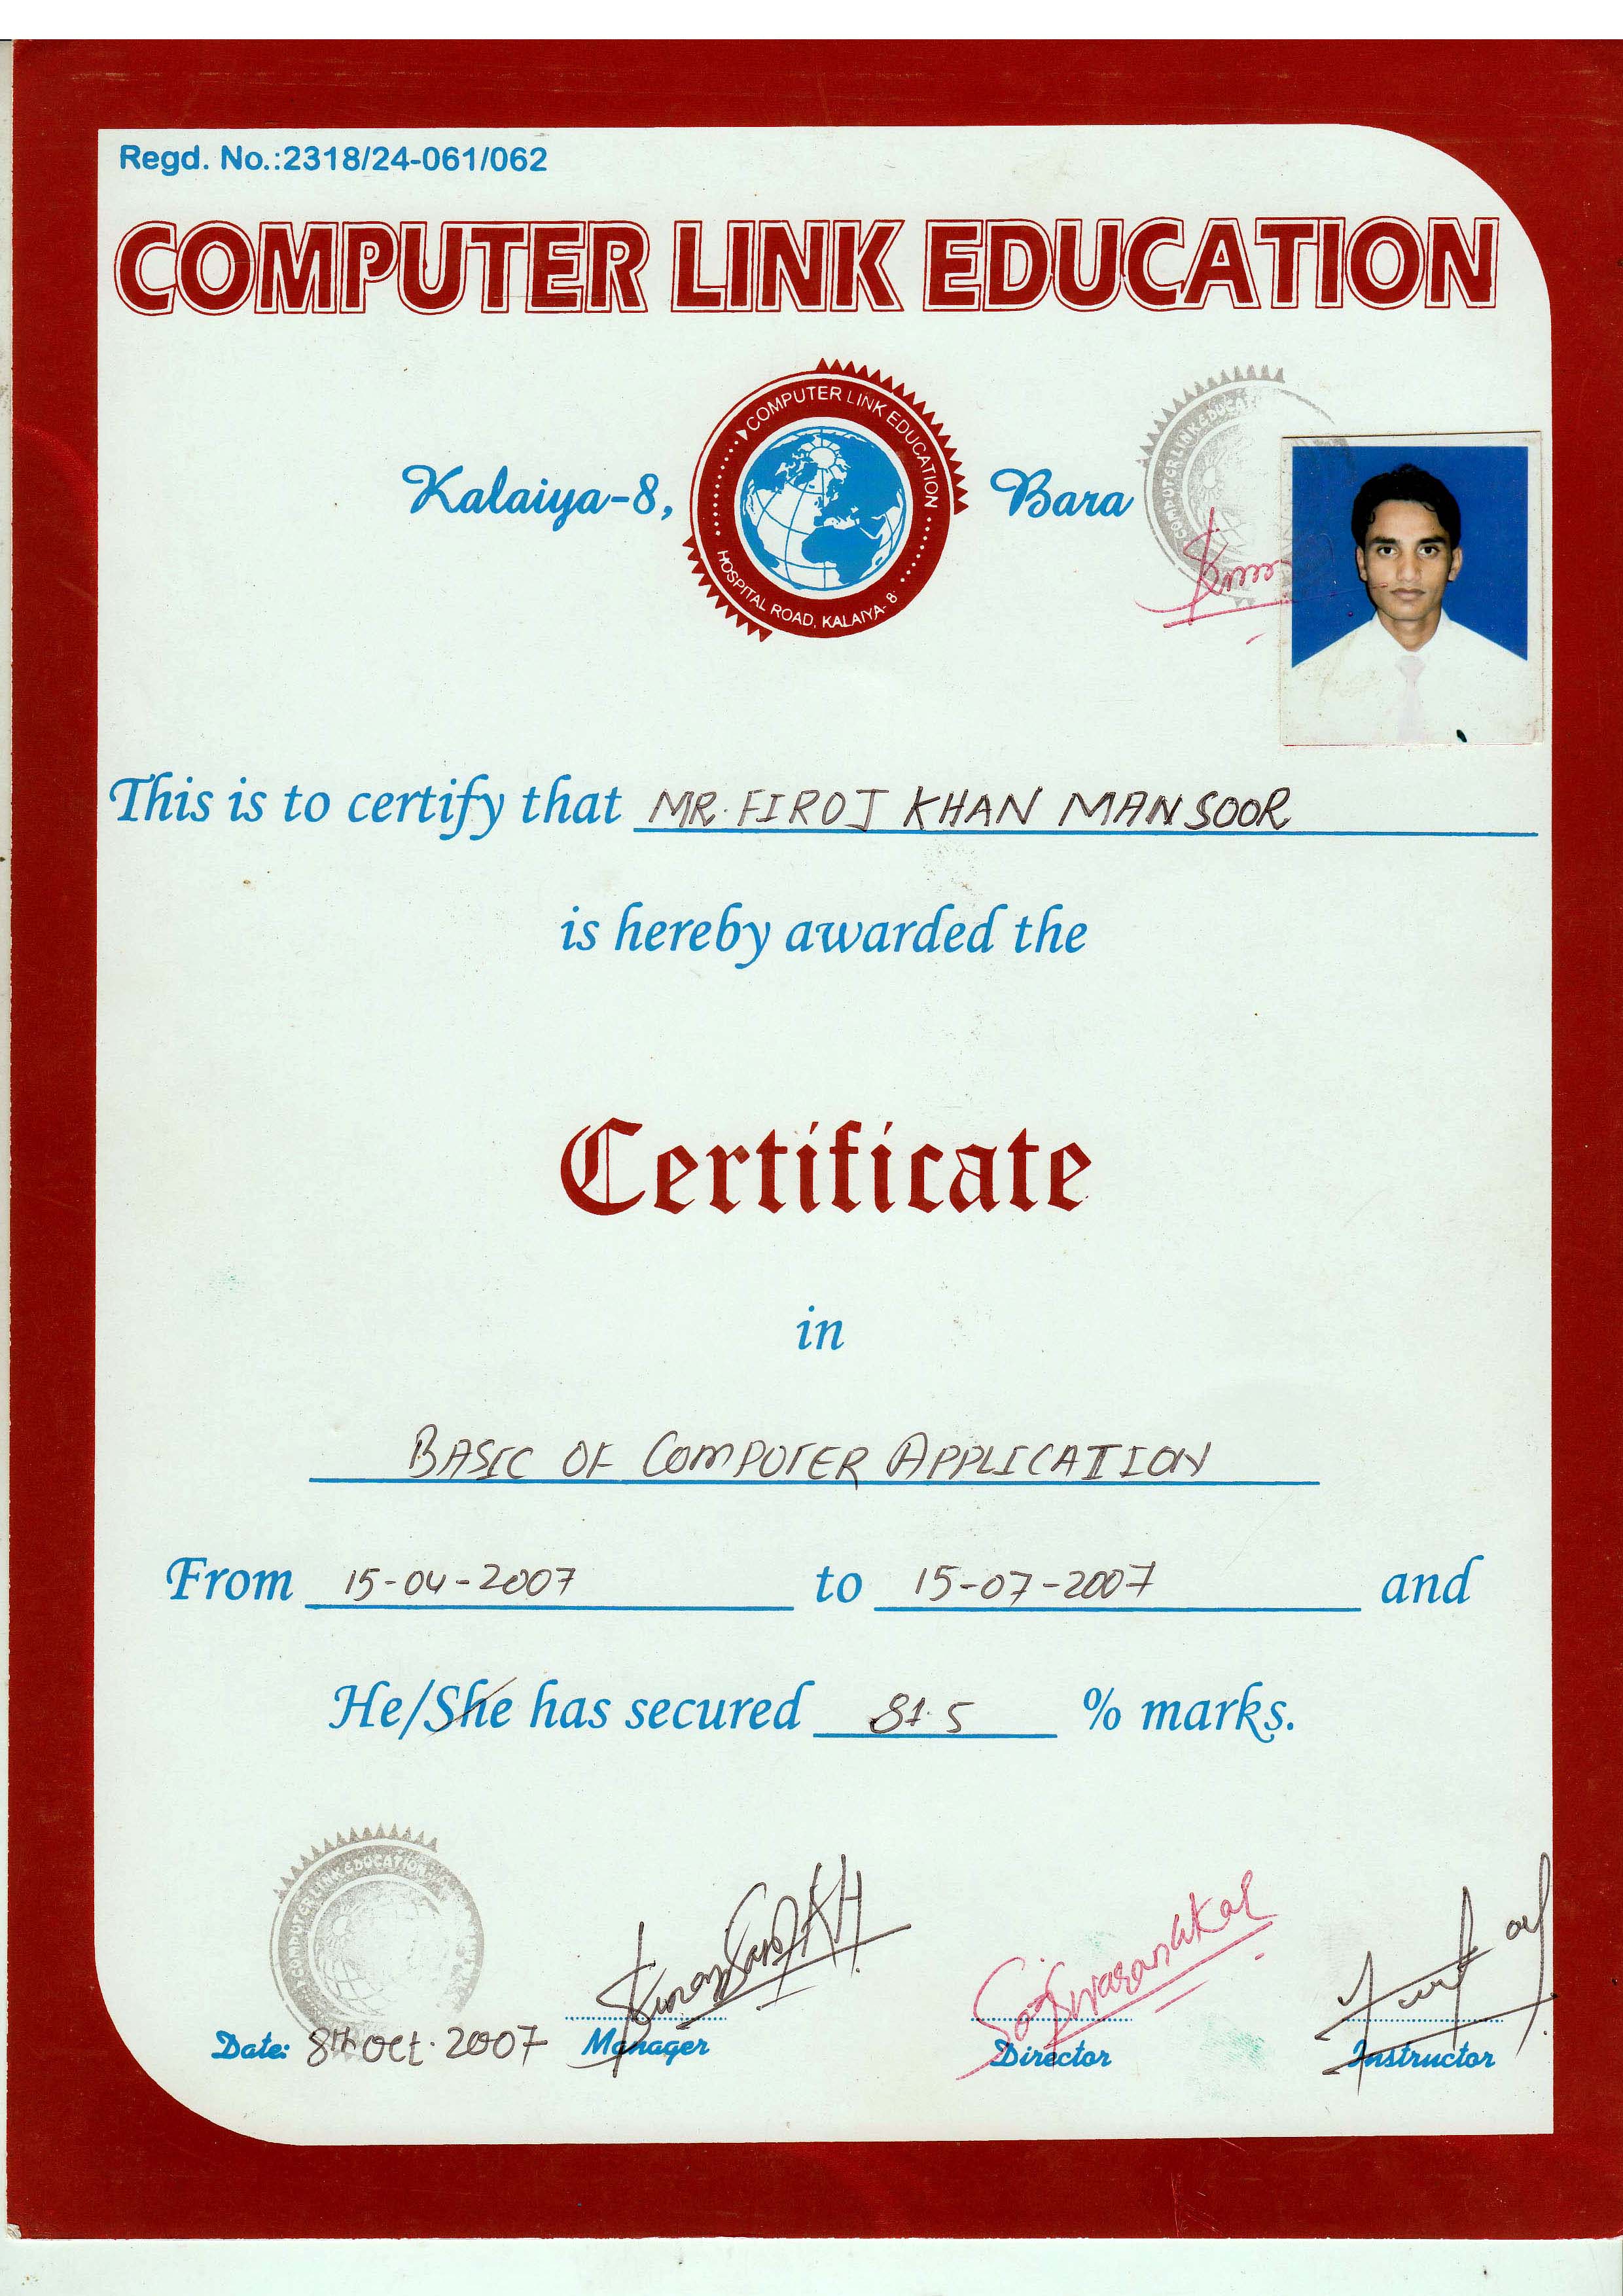 Regd. No.:2318/24-061/062
COMPUTER LINK EDUCATION
COMPUTER LINK EDUCATION
Kalaiya-8,
Bara
HOSPITAL ROAD, KALAIYA-8
COMPUTER LINK EDUCAT
This is to certify that MR. FIROJ KHAN MANSOOR
is hereby awarded the
Certificate
in
BASIC OF COMPUTER APPLICATION
From 15-04-2007 to 15-07-2007 and
He/She has secured 81.5 % marks.
COMPUTER LINK EDUCATION
Date: 8th Oct. 2007 Manager Director Instructor